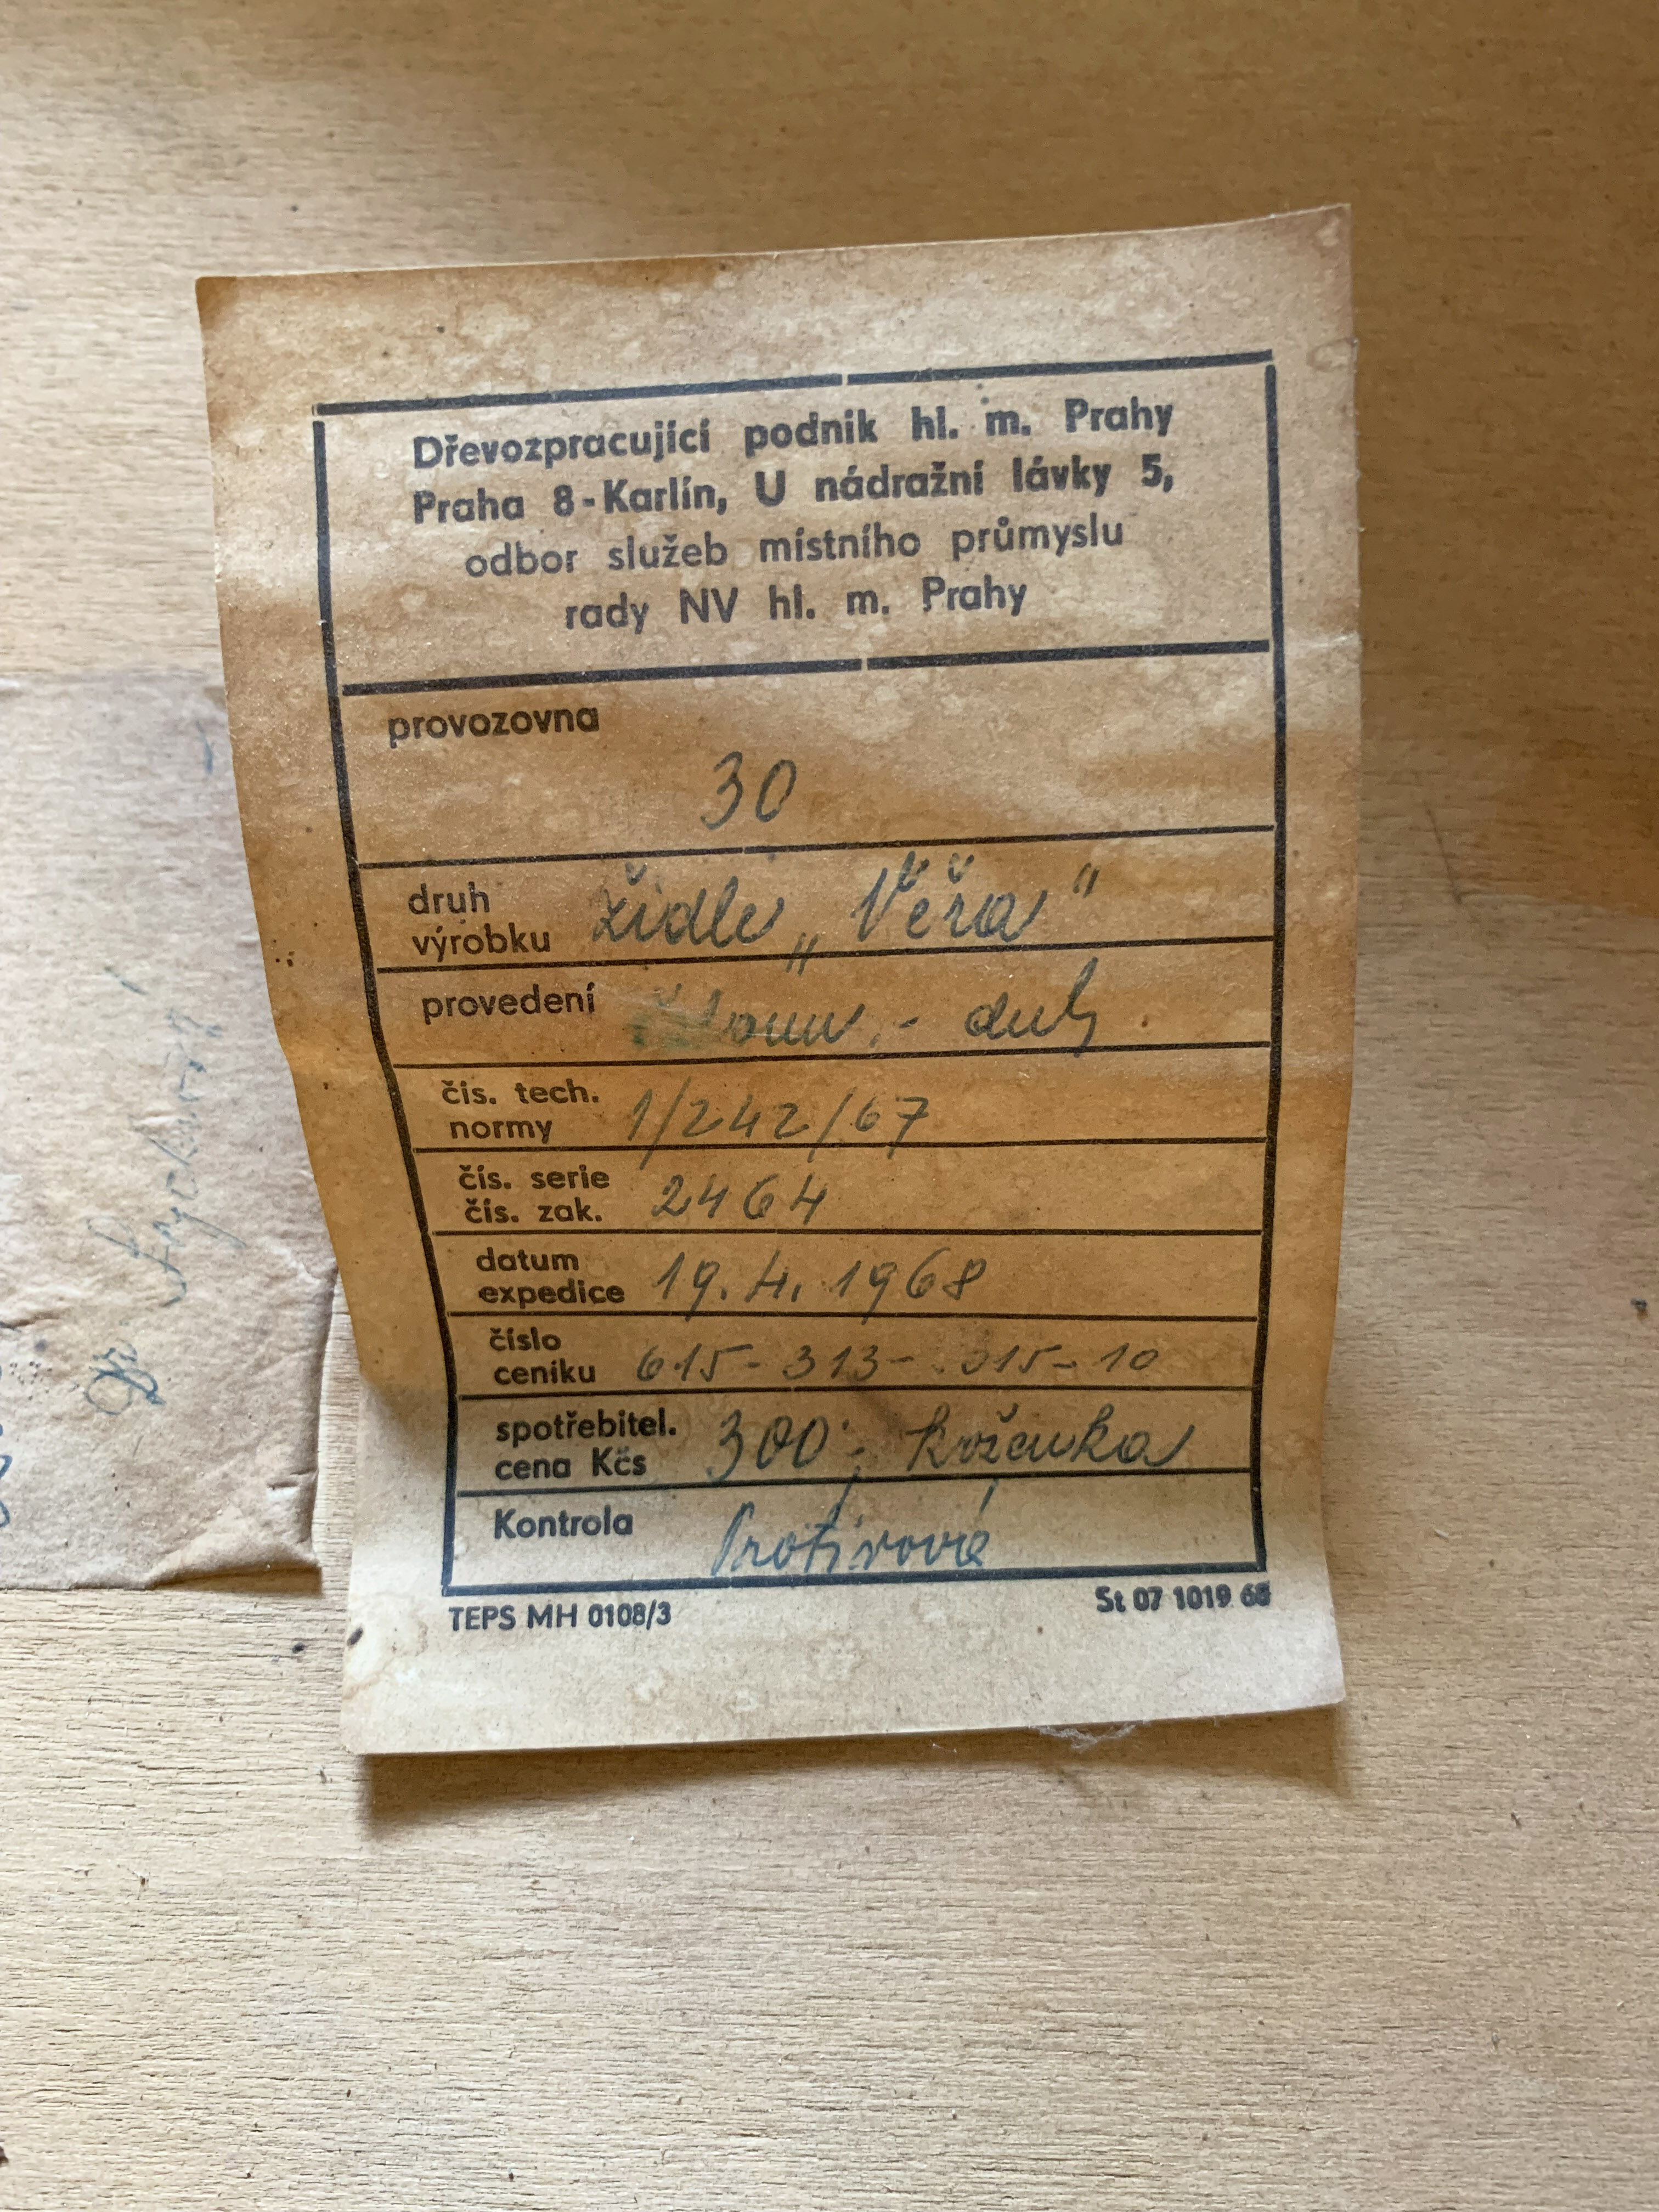 Dřevozpracující podnik hl. m. Prahy
Praha 8 - Karlín, U nádražní lávky 5,
odbor služeb místního průmyslu
rady NV hl. m. Prahy
provozovna
30
druh
výrobku židle „Věra"
provedení - dub
čis. tech.
normy 1/242/67
čís. serie
čís. zak. 2464
datum
expedice 19.4.1968
číslo
ceníku 615-313-315-10
spotřebitel.
cena Kčs 300,- koženka
Kontrola
TEPS MH 0108/3 St 07 1019